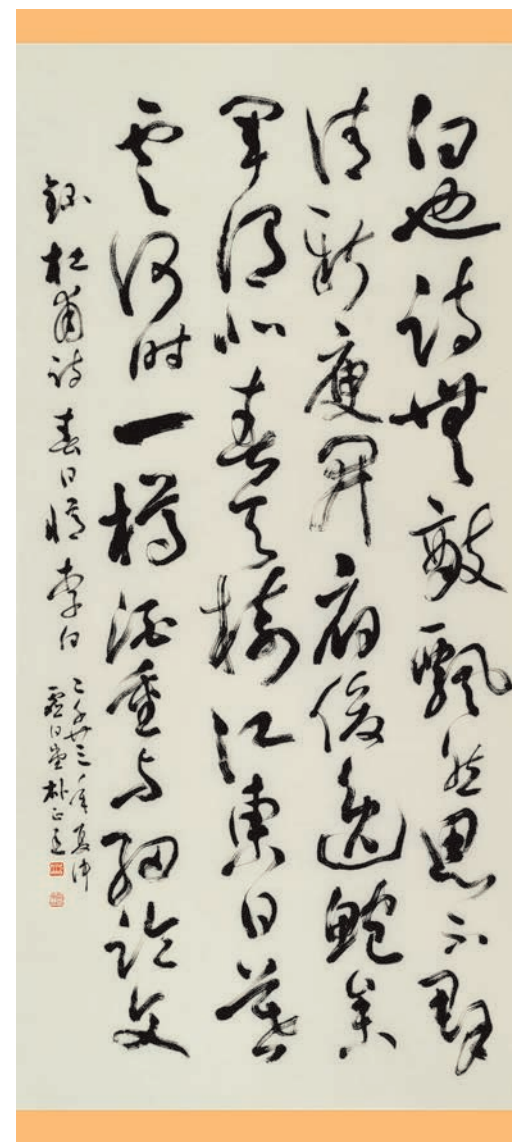 白也詩無敵飄然思不群
清新庾開府俊逸鮑參
軍渭北春天樹江東日暮
雲何時一樽酒重与細論文
錄杜甫詩春日憶李白
二千廿三年夏
堂朴正